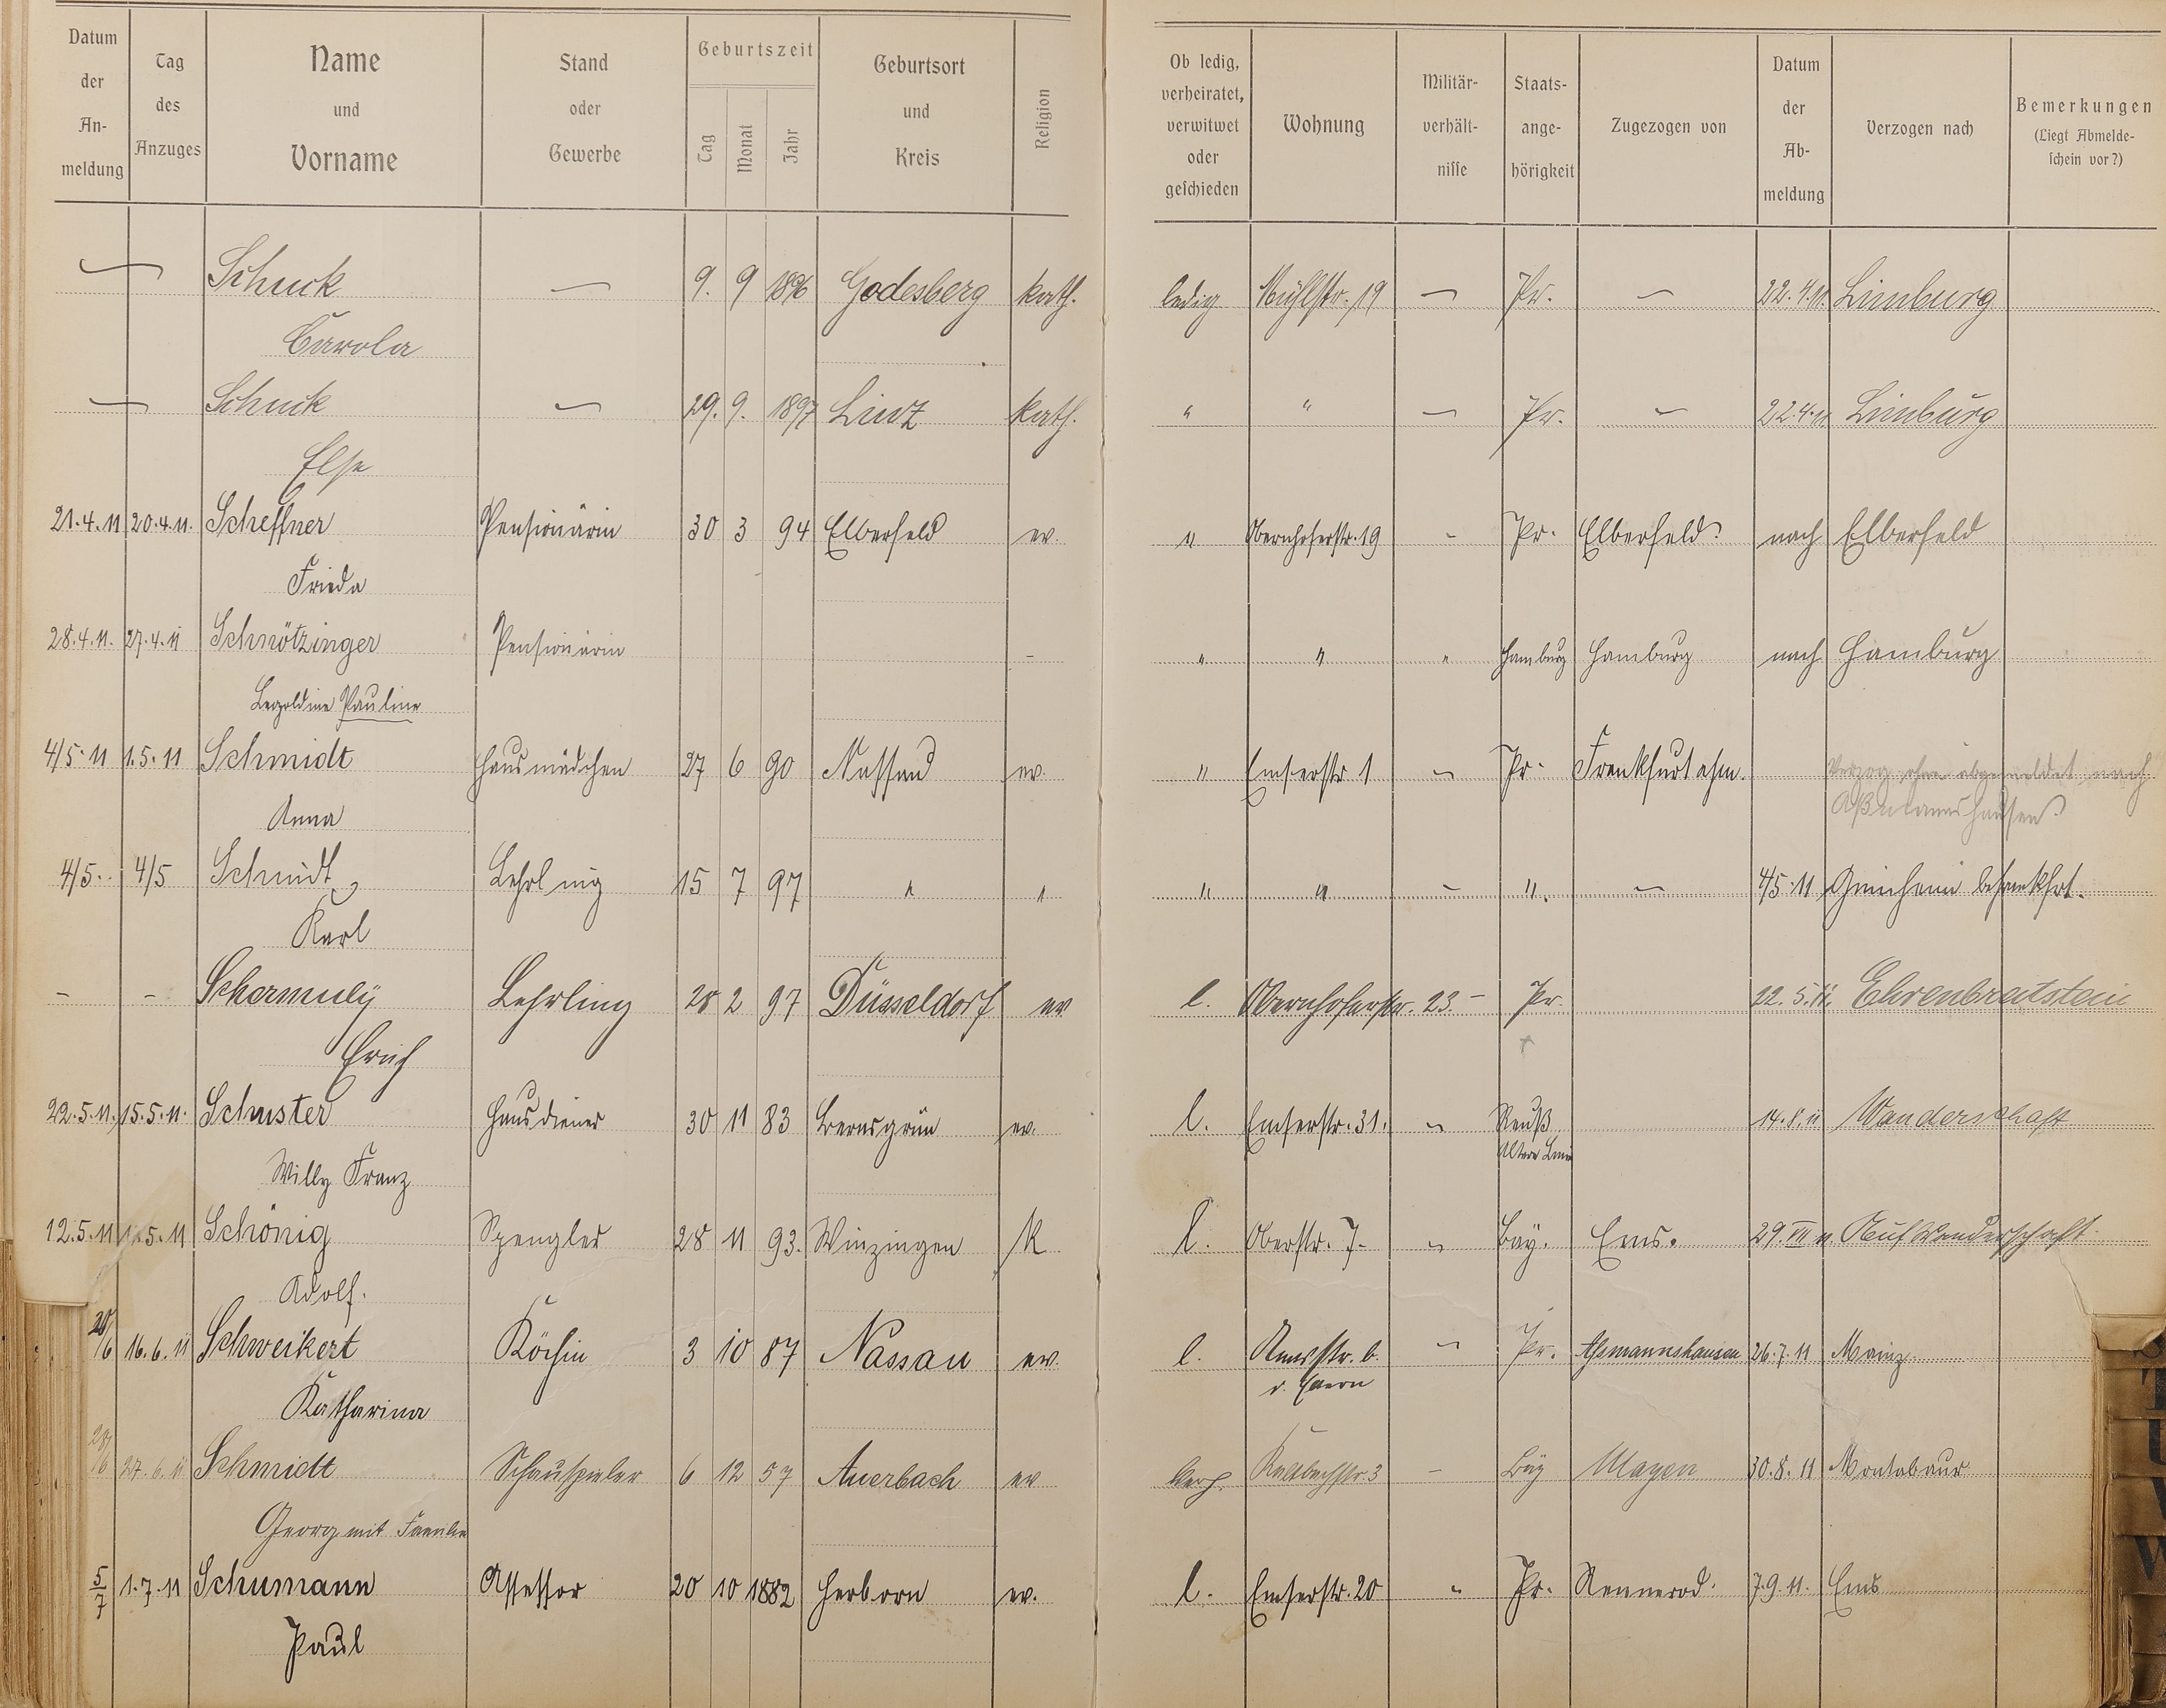 Datum der Anmeldung | Tag des Anzuges | Name und Vorname | Stand oder Gewerbe | Geburtszeit Tag Monat Jahr | Geburtsort und Kreis | Religion | Ob ledig, verheiratet, verwitwet oder geschieden | Wohnung | Militärverhältnisse | Staatsangehörigkeit | Zugezogen von | Datum der Abmeldung | Verzogen nach | Bemerkungen (Liegt Abmeldeschein vor?)
— Schuck — 9. 9 1896 Godesberg kath. ledig Mühlstr. 19 — Pr. — 22.4.11. Limburg
Carola
— Schuck — 29. 9. 1897 Linz kath. " " — Pr. — 22.4.11 Limburg
Else
21.4.11 20.4.11. Scheffner Pensionärin 30 3 94 Elberfeld ev. " Obernhoferstr. 19 - Pr. Elberfeld nach Elberfeld
Frieda
28.4.11. 27.4.11 Schnötzinger Pensionärin - " " " Hamburg Hamburg nach Hamburg
Leopoldine Pauline
4/5.11 1.5.11 Schmidt Hausmädchen 27 6 90 Nassau ev. " Emserstr. 1 - Pr. Frankfurt a/m. Verzog ohne abgemeldet nach
Aßmannshausen
4/5. 4/5 Schmidt Lehrling 15 7 97 " " " " - ". — 4/5.11
Karl
- - Schermuly Lehrling 28 2 97 Düsseldorf ev l. Obernhoferstr. 23. - Pr. 22.5.11. Ehrenbreitstein
Erich
22.5.11. 15.5.11. Schuster Hausdiener 30 11 83 Bernsgrün ev. l. Emserstr. 31. " Reuß 14.8.11 Wanderschaft
Willy Franz ältere Linie
12.5.11 5.11 Schönig Spengler 28 11 93. Winzingen K l. Oberstr. 7- " Bay. Ems. 29.VII 11 Auf Wanderschaft
Adolf.
20/6 16.6.11 Schweikert Köchin 3 10 87 Nassau ev. l. - Pr. Assmannshausen 26.7.11 Mainz
Katharina
6 27.6.11 Schmidt Schauspieler 6 12 57 Auerbach ev verh. Kaltbachstr. 3 - Bay Mayen 30.8.11 Montabaur
Georg mit Familie
5/7 1.7.11 Schumann Assessor 20 10 1882 Herborn ev. l. Emserstr. 20 " Pr. Rennerod. 7.9.11. Ems
Paul